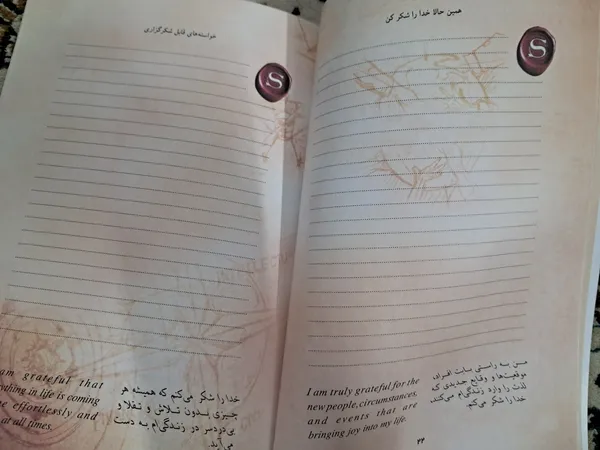 همین حالا خدا را شکر کن
S
من به راستی بابت افراد،
موقعیت‌ها و وقایع جدیدی که
لذت را وارد زندگی‌ام می‌کنند،
خدا را شکر می‌کنم.
I am truly grateful for the
new people, circumstances,
and events that are
bringing joy into my life.
۲۴
خواسته‌های قابل شکرگزاری
S
خدا را شکر می‌کنم که همیشه هر
چیزی بدون تلاش و تقلا و
بی‌دردسر در زندگی‌ام به دست
می‌آید.
am grateful that
ything in life is coming
e effortlessly and
at all times.